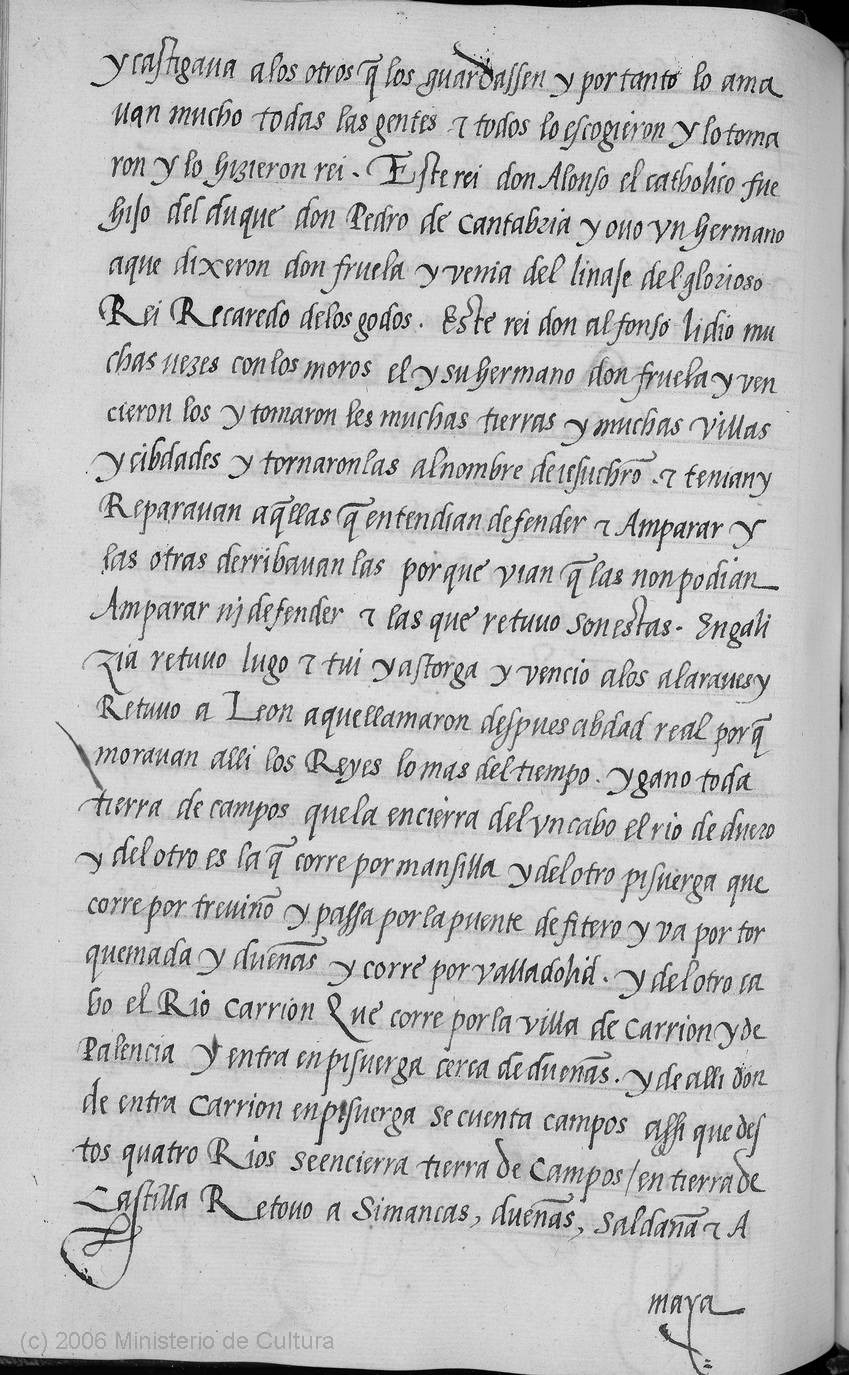 y castigaua a los otros q̃ los guardassen y por tanto lo ama
uan mucho todas las gentes ⁊ todos lo escogieron y lo toma
ron y lo hizieron rei. Este rei don Alonso el catholico fue
hijo del duque don Pedro de cantabria y ouo vn hermano
aque dixeron don fruela y venia del linaje del glorioso
Rei Recaredo delos godos. Este rei don alfonso lidio mu
chas uezes con los moros el y su hermano don fruela y ven
cieron los y tomaron les muchas tierras y muchas villas
y cibdades y tornaron las al nombre de iesuchro͂. ⁊ tenian y
Reparauan aq̃llas q̃ entendian defender ⁊ Amparar y
las otras derribauan las porque vian q̃ las non podian
Amparar nj defender ⁊ las que retuuo son estas. En gali
zia retuuo lugo ⁊ tui y astorga y vencio alos alaraues y
Retuuo a Leon aque llamaron despues cibdad real porq̃
morauan alli los Reyes lo mas del tiempo. y gano toda
tierra de campos que la encierra del vn cabo el rio de duero
y del otro es la q̃ corre por mansilla y del otro pisuerga que
corre por treviño y passa por la puente de fitero y va por tor
quemada y dueñas y corre por valladolid. y del otro ca
bo el Rio carrion Que corre por la villa de carrion y de
Palencia y entra en pisuerga cerca de dueñas. y de alli don
de entra carrion en pisuerga se cuenta campos assi que des
tos quatro Rios se encierra tierra de campos / en tierra de
Castilla Retouo a Simancas, dueñas, saldaña ⁊ A
maya
(c) 2006 Ministerio de Cultura